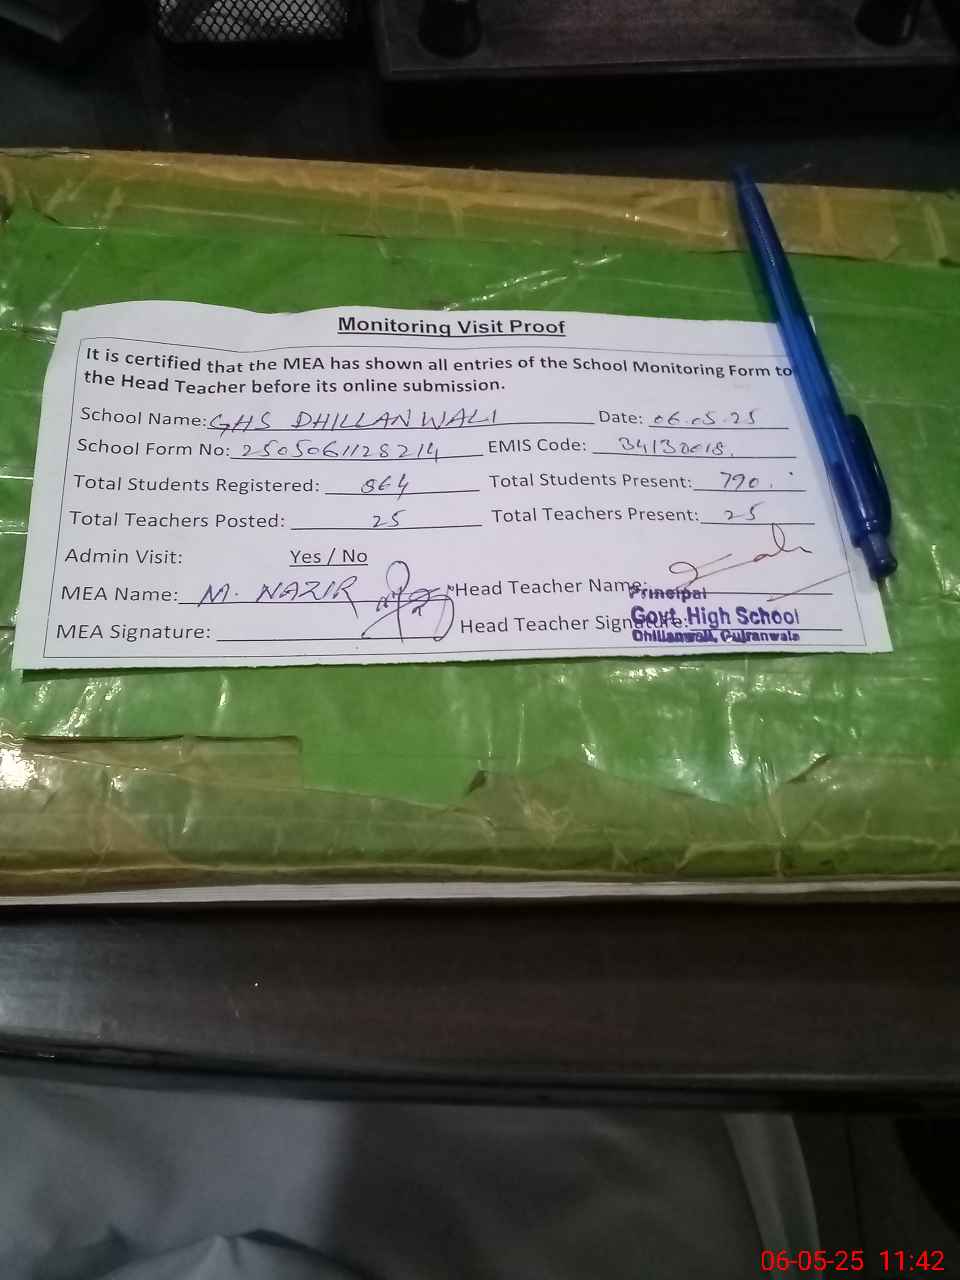 Monitoring Visit Proof
It is certified that the MEA has shown all entries of the School Monitoring Form to
the Head Teacher before its online submission.
School Name: GHS DHILLANWALI Date: 06.05.25
School Form No: 2505061128214 EMIS Code: 34130018
Total Students Registered: 864 Total Students Present: 790
Total Teachers Posted: 25 Total Teachers Present: 25
Admin Visit: Yes / No
MEA Name: M. NAZIR Head Teacher Name:
Principal
MEA Signature: Head Teacher Signature:
Govt. High School
Dhillanwali, Gujranwala
06-05-25 11:42